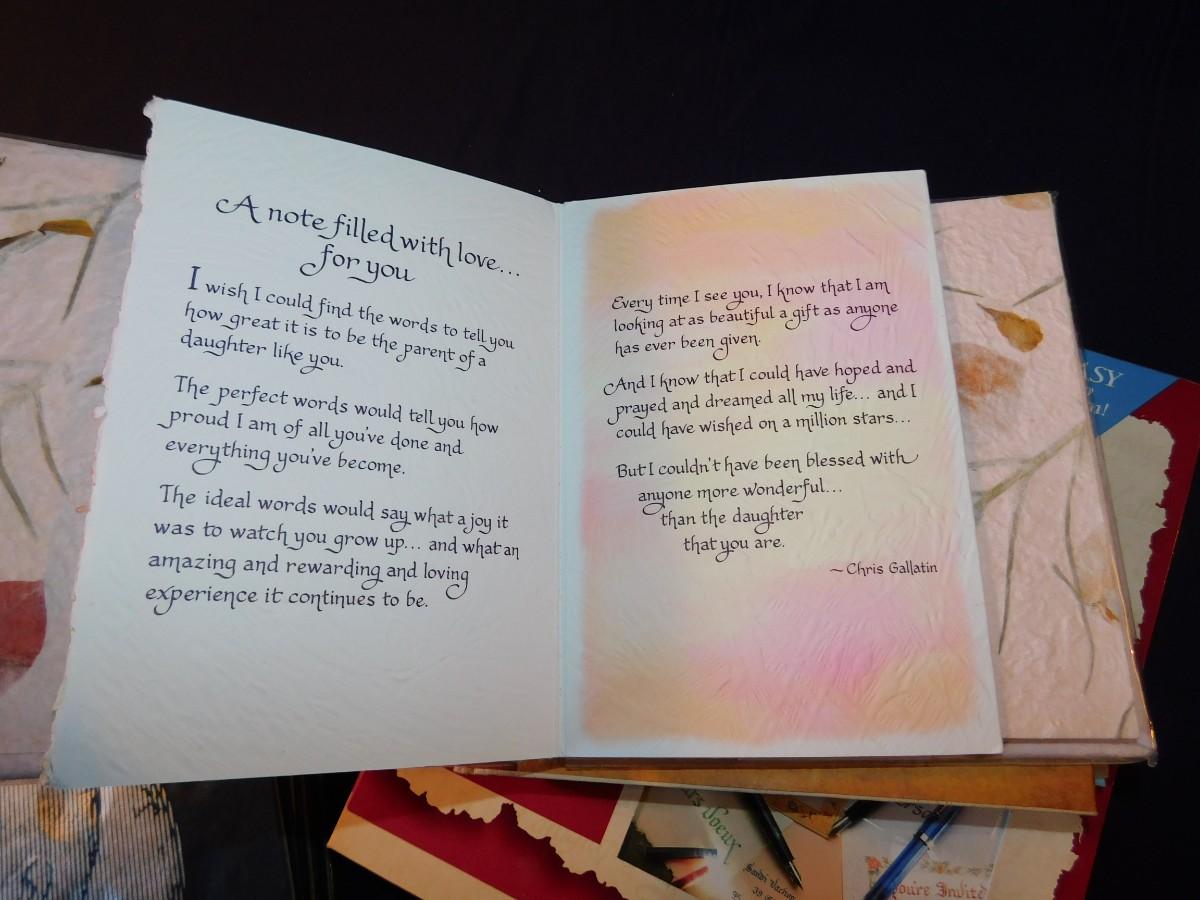 A note filled with love...
for you
I wish I could find the words to tell you
how great it is to be the parent of a
daughter like you.
The perfect words would tell you how
proud I am of all you've done and
everything you've become.
The ideal words would say what a joy it
was to watch you grow up... and what an
amazing and rewarding and loving
experience it continues to be.
Every time I see you, I know that I am
looking at as beautiful a gift as anyone
has ever been given.
And I know that I could have hoped and
prayed and dreamed all my life... and I
could have wished on a million stars...
But I couldn't have been blessed with
anyone more wonderful...
than the daughter
that you are.
~ Chris Gallatin
Voeux
Sandi
You're Invite